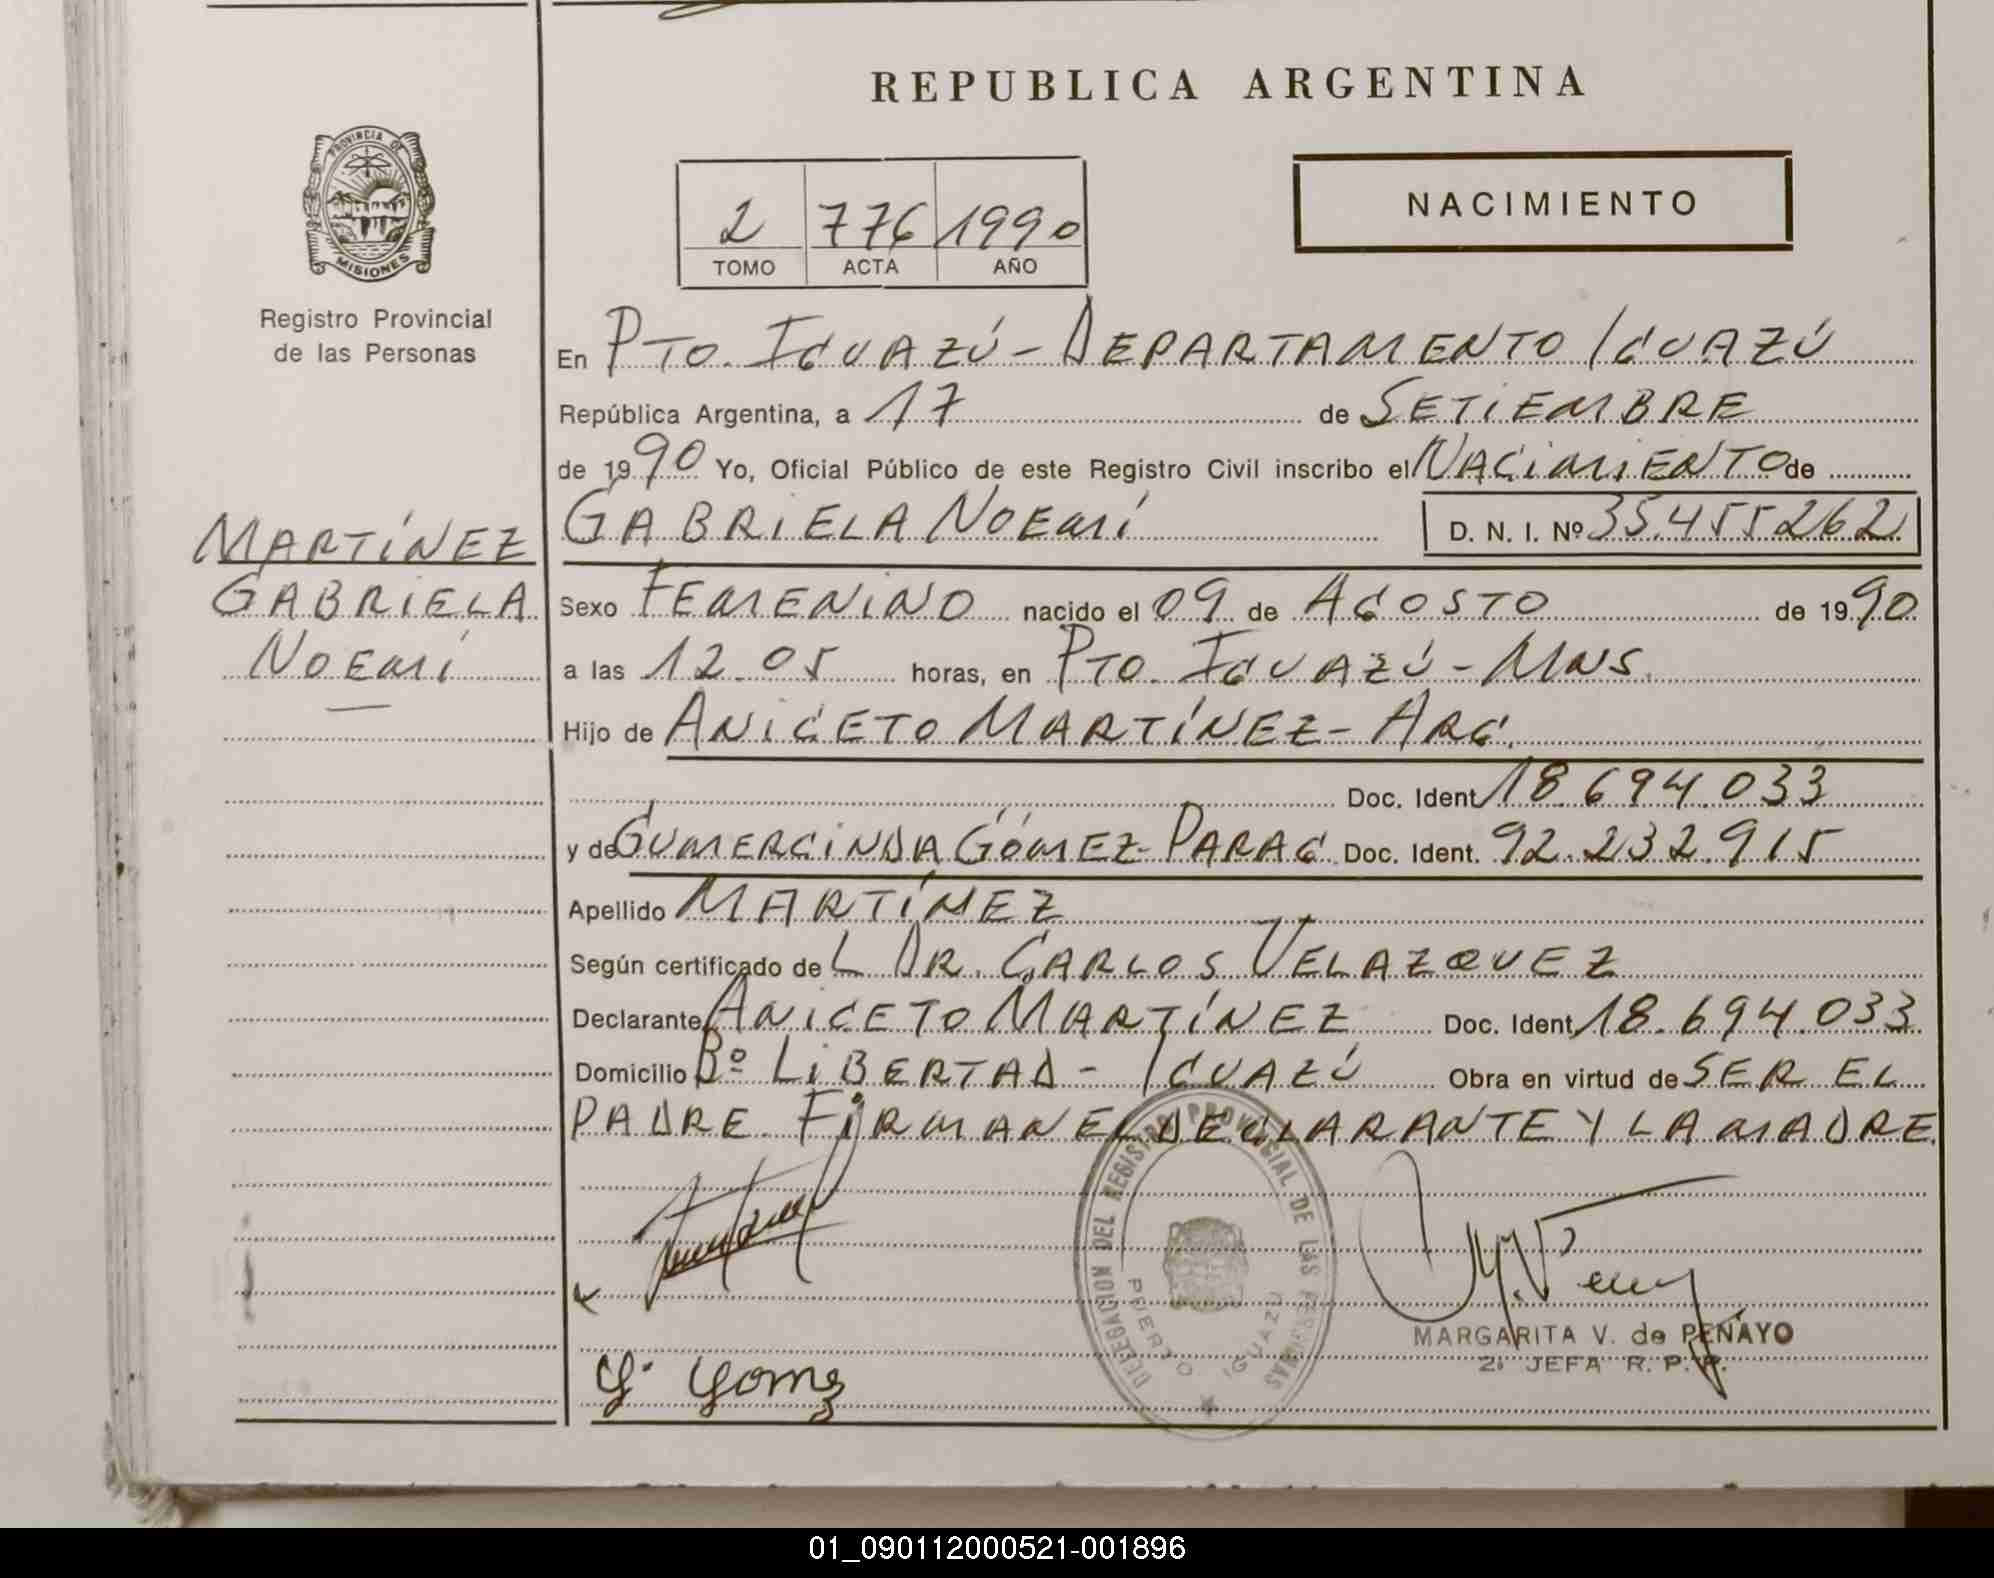 REPUBLICA ARGENTINA
PROVINCIA DE
MISIONES
Registro Provincial
de las Personas
2 776 1990
TOMO ACTA AÑO
NACIMIENTO
En PTO. IGUAZÚ - DEPARTAMENTO IGUAZÚ
República Argentina, a 17 de SETIEMBRE
de 1990 Yo, Oficial Público de este Registro Civil inscribo el NACIMIENTO de
MARTÍNEZ
GABRIELA
NOEMÍ
GABRIELA NOEMÍ D. N. I. Nº 35.455262
Sexo FEMENINO nacido el 09 de AGOSTO de 1990
a las 12.05 horas, en PTO. IGUAZÚ - MNS.
Hijo de ANICETO MARTÍNEZ - ARG.
Doc. Ident. 18.694.033
y de GUMERCINDA GÓMEZ - PARAG. Doc. Ident. 92.232.915
Apellido MARTÍNEZ
Según certificado de L DR. CARLOS VELAZQUEZ
Declarante ANICETO MARTÍNEZ Doc. Ident. 18.694.033
Domicilio Bº LIBERTAD - IGUAZÚ Obra en virtud de SER EL
PADRE. FIRMAN EL DECLARANTE Y LA MADRE.
DELEGACION DEL REGISTRO PROVINCIAL DE LAS PERSONAS
PUERTO IGUAZU
MARGARITA V. de PEÑAYO
2ª JEFA R. P. P.
G. Gomez
01_090112000521-001896